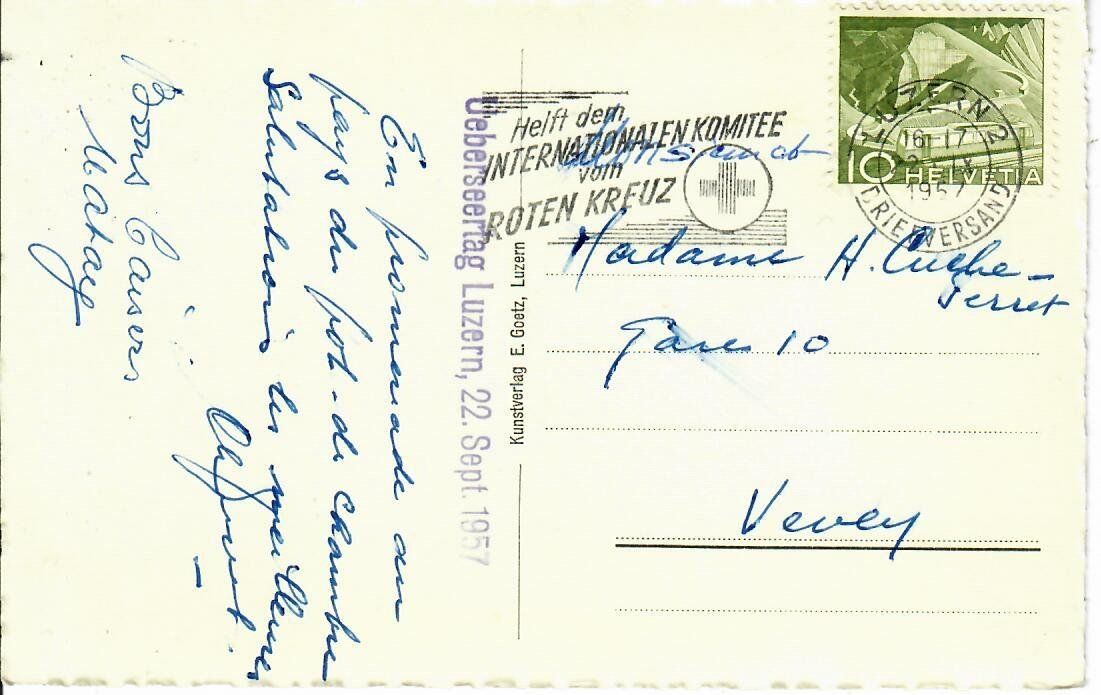 En promenade au
pays du pot-de chambre
Salutations les meilleures
Bons baisers
Ueberseertag Luzern, 22. Sept. 1957
Kunstverlag E. Goetz, Luzern
Helft dem
INTERNATIONALEN KOMITEE
vom
ROTEN KREUZ
LUZERN 2
16-17
IX
1957
BRIEFVERSAND
10 HELVETIA
Madame H. Cuche-
Perret
Gare 10
Vevey